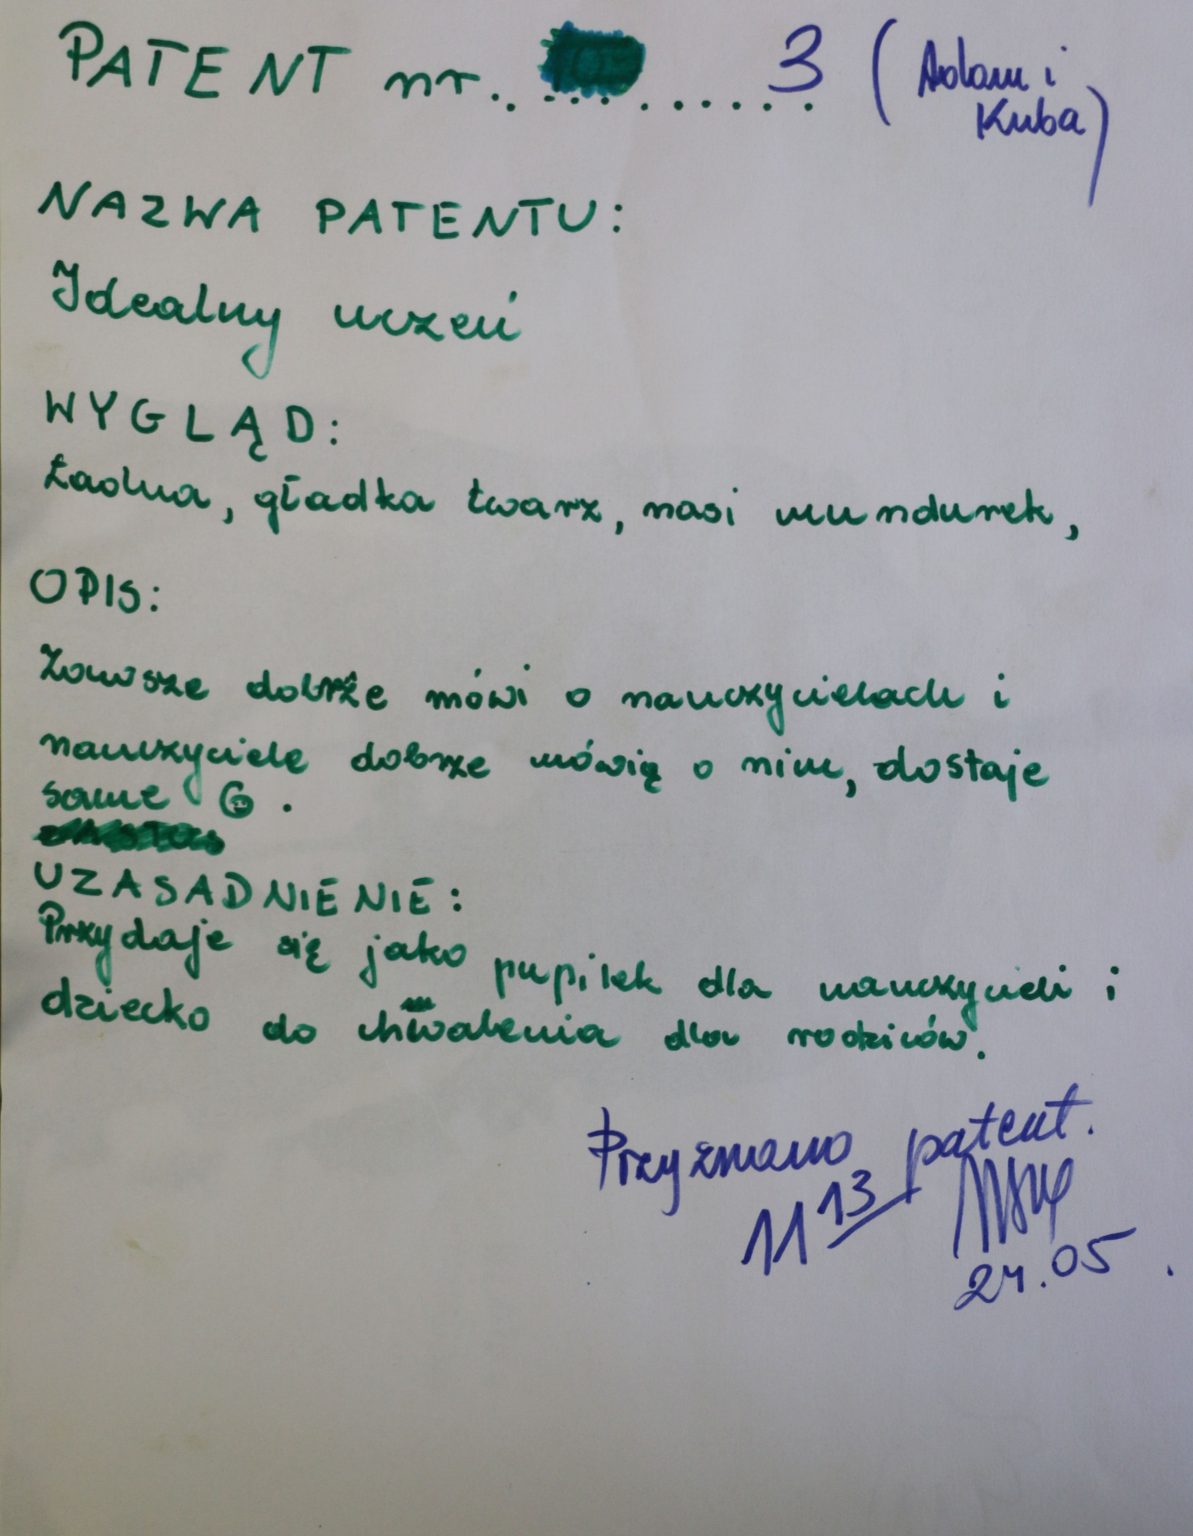 PATENT nr. ......... 3 (Adam i
Kuba)
NAZWA PATENTU:
Idealny uczeń
WYGLĄD:
Ładna, gładka twarz, nosi mundurek,
OPIS:
Zawsze dobrze mówi o nauczycielach i
nauczyciele dobrze mówią o nim, dostaje
same 6.
UZASADNIENIE:
Przydaje się jako pupilek dla nauczycieli i
dziecko do chwalenia dla rodziców.
Przyznano patent.
11 13
24.05